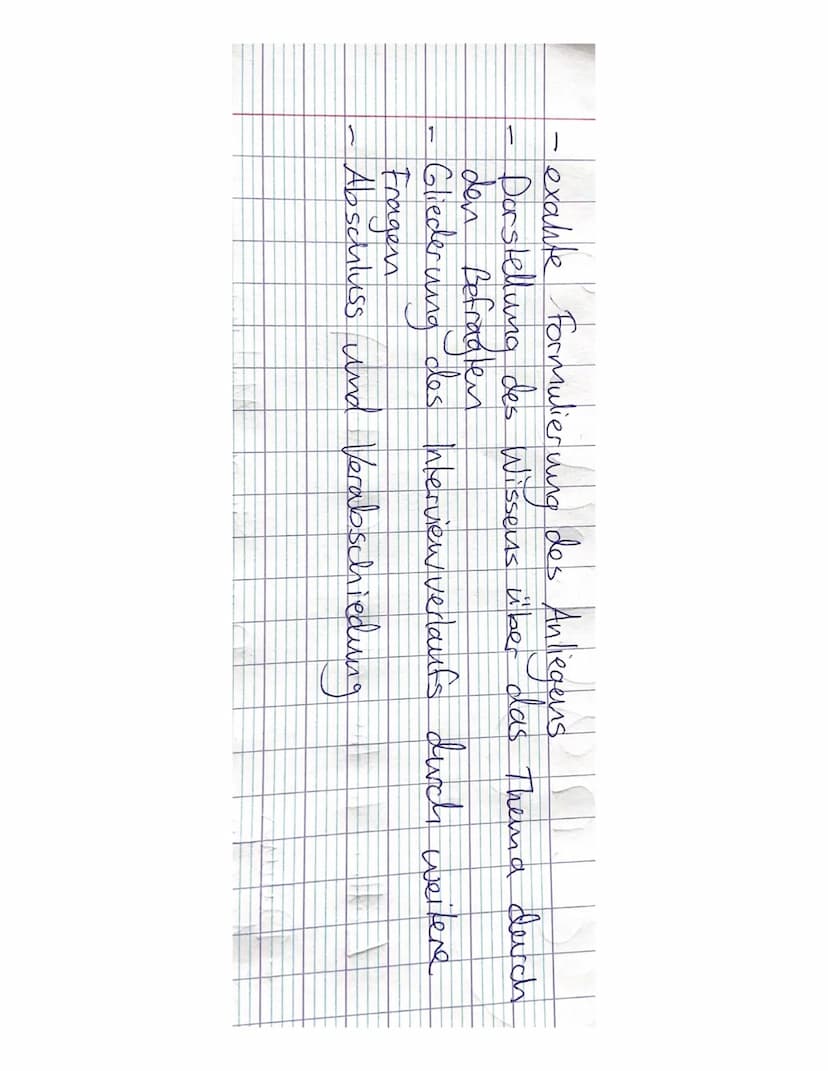 - exakte Formulierung des Anliegens
- Darstellung des Wissens über das Thema durch
den Befragten
- Gliederung des Interviewverlaufs durch weitere
Fragen
- Abschluss und Verabschiedung